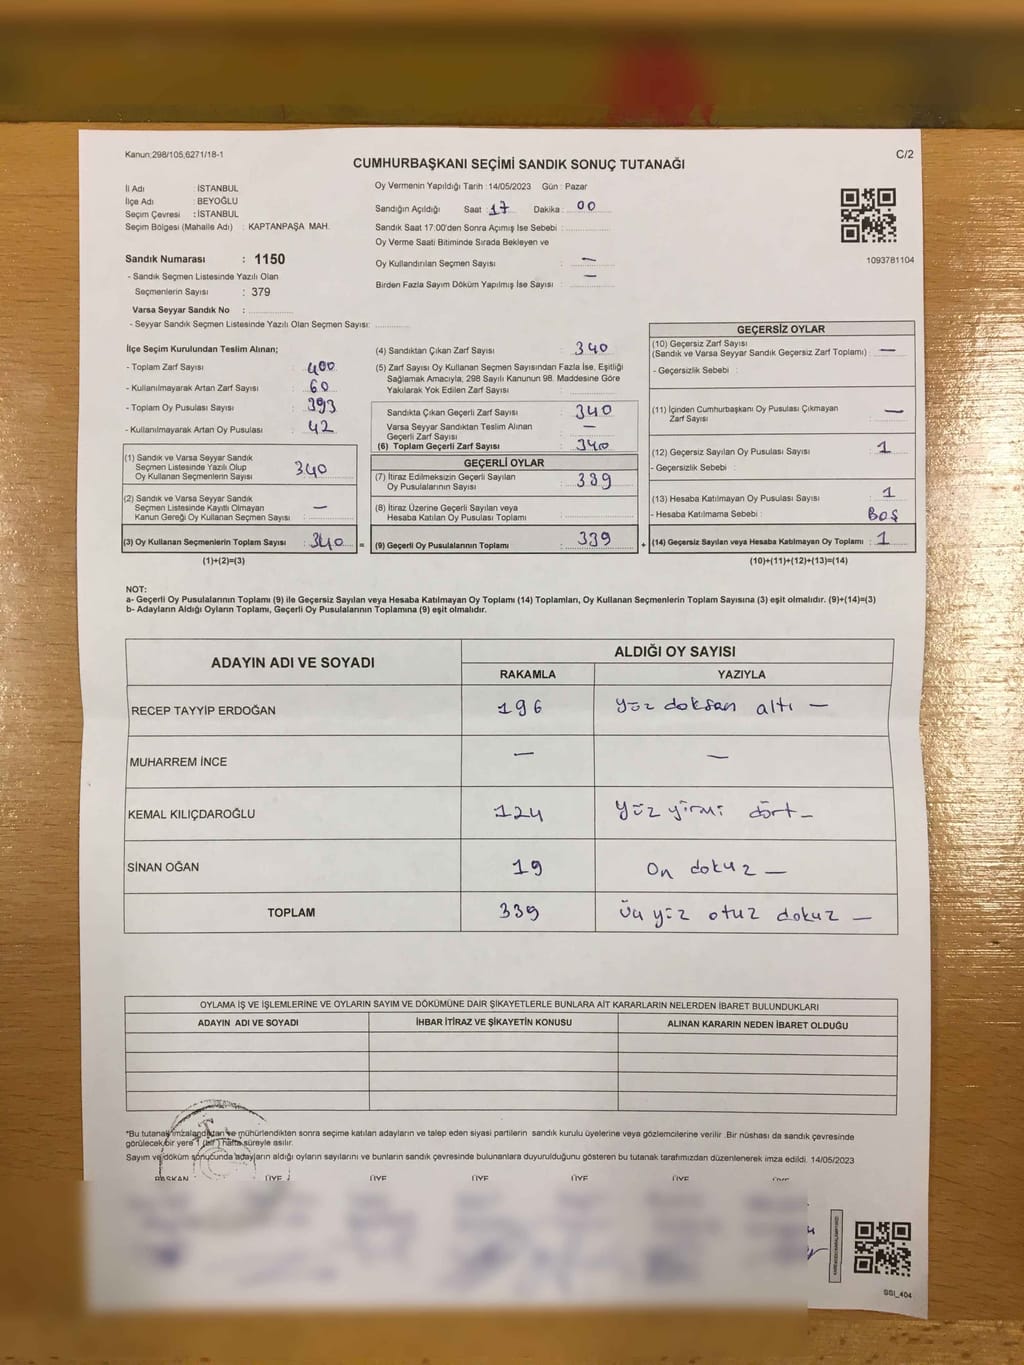 Kanun;298/105,6271/18-1
C/2
CUMHURBAŞKANI SEÇİMİ SANDIK SONUÇ TUTANAĞI
İl Adı : İSTANBUL
İlçe Adı : BEYOĞLU
Seçim Çevresi : İSTANBUL
Seçim Bölgesi (Mahalle Adı) : KAPTANPAŞA MAH.
Sandık Numarası : 1150
- Sandık Seçmen Listesinde Yazılı Olan
Seçmenlerin Sayısı : 379
Varsa Seyyar Sandık No :
- Seyyar Sandık Seçmen Listesinde Yazılı Olan Seçmen Sayısı:
Oy Vermenin Yapıldığı Tarih : 14/05/2023 Gün : Pazar
Sandığın Açıldığı Saat : 17 Dakika : 00
Sandık Saat 17:00'den Sonra Açımış İse Sebebi :
Oy Verme Saati Bitiminde Sırada Bekleyen ve
Oy Kullandırılan Seçmen Sayısı : —
Birden Fazla Sayım Döküm Yapılmış İse Sayısı : —
1093781104
İlçe Seçim Kurulundan Teslim Alınan;
- Toplam Zarf Sayısı : 400
- Kullanılmayarak Artan Zarf Sayısı : 60
- Toplam Oy Pusulası Sayısı : 393
- Kullanılmayarak Artan Oy Pusulası : 42
(1) Sandık ve Varsa Seyyar Sandık
Seçmen Listesinde Yazılı Olup
Oy Kullanan Seçmenlerin Sayısı : 340
(2) Sandık ve Varsa Seyyar Sandık
Seçmen Listesinde Kayıtlı Olmayan
Kanun Gereği Oy Kullanan Seçmen Sayısı : —
(3) Oy Kullanan Seçmenlerin Toplam Sayısı : 340 =
(1)+(2)=(3)
(4) Sandıktan Çıkan Zarf Sayısı : 340
(5) Zarf Sayısı Oy Kullanan Seçmen Sayısından Fazla İse, Eşitliği
Sağlamak Amacıyla, 298 Sayılı Kanunun 98. Maddesine Göre
Yakılarak Yok Edilen Zarf Sayısı :
Sandıkta Çıkan Geçerli Zarf Sayısı : 340
Varsa Seyyar Sandıktan Teslim Alınan
Geçerli Zarf Sayısı : —
(6) Toplam Geçerli Zarf Sayısı : 340
GEÇERLİ OYLAR
(7) İtiraz Edilmeksizin Geçerli Sayılan
Oy Pusulalarının Sayısı : 339
(8) İtiraz Üzerine Geçerli Sayılan veya
Hesaba Katılan Oy Pusulası Toplamı :
(9) Geçerli Oy Pusulalarının Toplamı : 339 +
GEÇERSİZ OYLAR
(10) Geçersiz Zarf Sayısı
(Sandık ve Varsa Seyyar Sandık Geçersiz Zarf Toplamı) : —
- Geçersizlik Sebebi :
(11) İçinden Cumhurbaşkanı Oy Pusulası Çıkmayan
Zarf Sayısı : —
(12) Geçersiz Sayılan Oy Pusulası Sayısı : 1
- Geçersizlik Sebebi :
(13) Hesaba Katılmayan Oy Pusulası Sayısı : 1
- Hesaba Katılmama Sebebi : BOŞ
(14) Geçersiz Sayılan veya Hesaba Katılmayan Oy Toplamı : 1
(10)+(11)+(12)+(13)=(14)
NOT:
a- Geçerli Oy Pusulalarının Toplamı (9) ile Geçersiz Sayılan veya Hesaba Katılmayan Oy Toplamı (14) Toplamları, Oy Kullanan Seçmenlerin Toplam Sayısına (3) eşit olmalıdır. (9)+(14)=(3)
b- Adayların Aldığı Oyların Toplamı, Geçerli Oy Pusulalarının Toplamına (9) eşit olmalıdır.
ADAYIN ADI VE SOYADI
ALDIĞI OY SAYISI
RAKAMLA YAZIYLA
RECEP TAYYİP ERDOĞAN 196 yüz doksan altı —
MUHARREM İNCE — —
KEMAL KILIÇDAROĞLU 124 yüz yirmi dört —
SİNAN OĞAN 19 On dokuz —
TOPLAM 339 Üç yüz otuz dokuz —
OYLAMA İŞ VE İŞLEMLERİNE VE OYLARIN SAYIM VE DÖKÜMÜNE DAİR ŞİKAYETLERLE BUNLARA AİT KARARLARIN NELERDEN İBARET BULUNDUKLARI
ADAYIN ADI VE SOYADI İHBAR İTİRAZ VE ŞİKAYETİN KONUSU ALINAN KARARIN NEDEN İBARET OLDUĞU
*Bu tutanak imzalandıktan ve mühürlendikten sonra seçime katılan adayların ve talep eden siyasi partilerin sandık kurulu üyelerine veya gözlemcilerine verilir .Bir nüshası da sandık çevresinde
görülecek bir yere 1 (bir) hafta süreyle asılır.
Sayım ve döküm sonucunda adayların aldığı oyların sayılarını ve bunların sandık çevresinde bulunanlara duyurulduğunu gösteren bu tutanak tarafımızdan düzenlenerek imza edildi. 14/05/2023
BAŞKAN ÜYE ÜYE ÜYE ÜYE ÜYE ÜYE
SSI_404